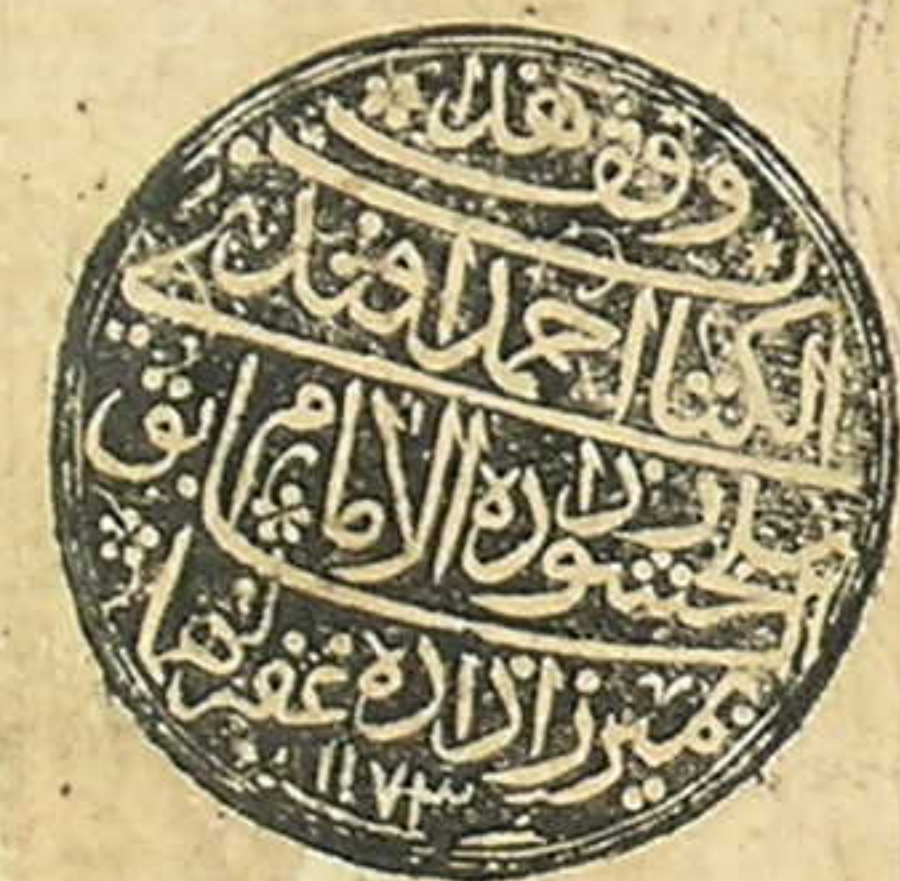 وقف هذا
الكتاب احمد افندي
سلحشور زاده الامام السابق
بميرزا زاده غفر لهما
١١٧٣